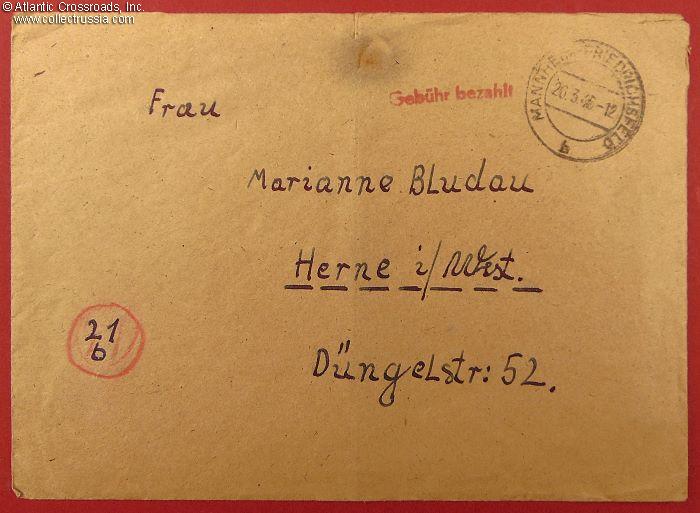 © Atlantic Crossroads, Inc.
www.collectrussia.com
Gebühr bezahlt
MANNHEIM-FRIEDRICHSFELD
b
Frau
Marianne Bludau
Herne i/West.
21
b
Düngelstr: 52.